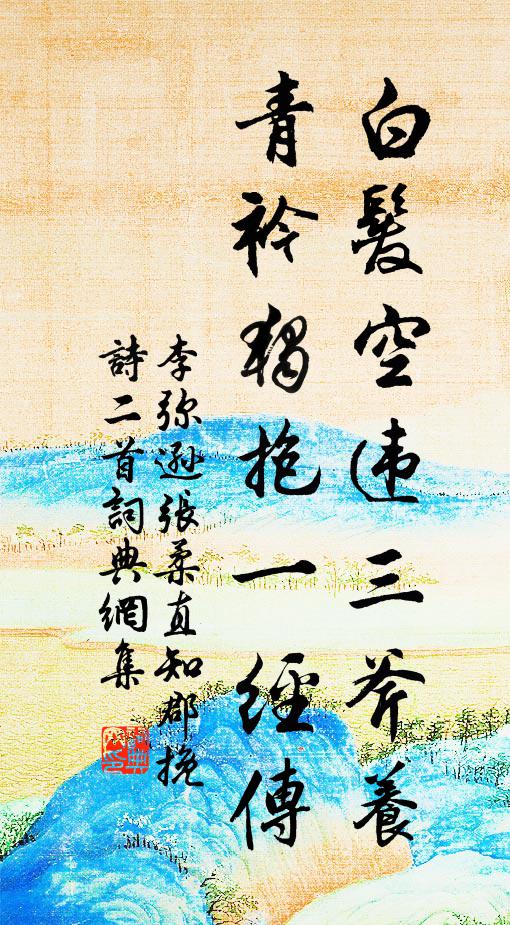 白髮空违三斧養
青衿獨抱一經傳
李弥遜張柔直知郡挽
詩二首詞典網集